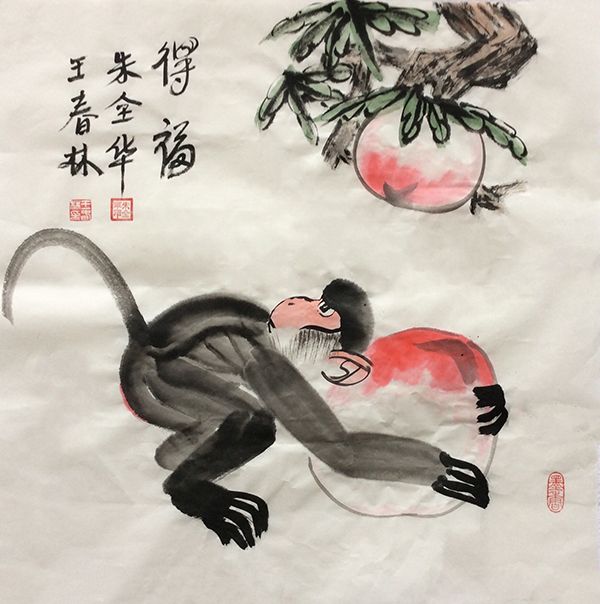 得福
朱全华
王春林